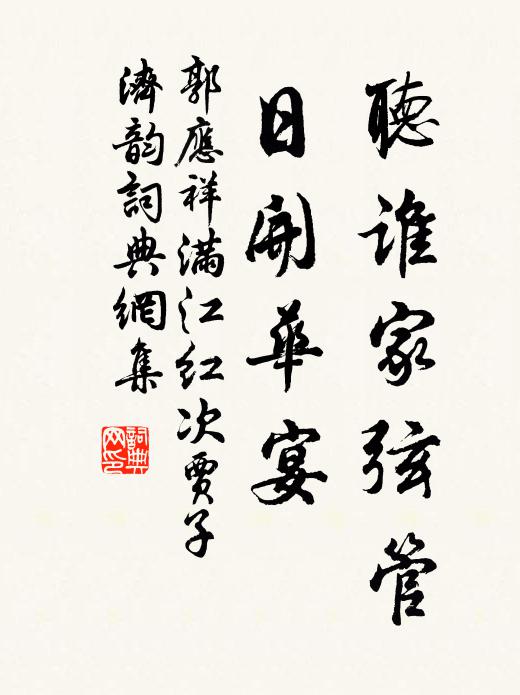 聽誰家弦管
日開華宴
郭應祥滿江红次賈子
濟韵詞典網集
詞典网印